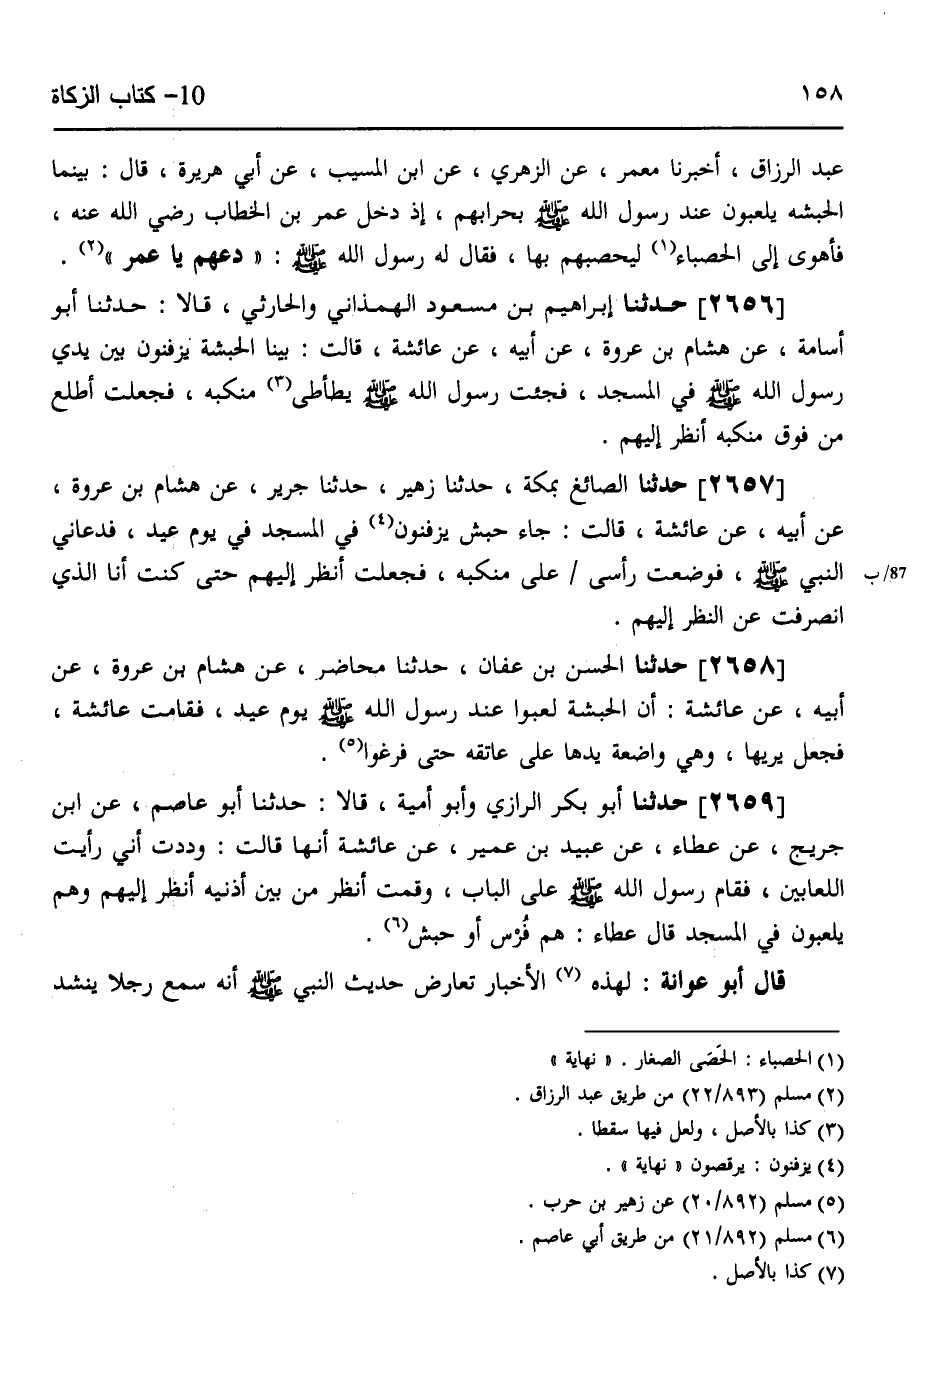 ١٥٨ 10- كتاب الزكاة
عبد الرزاق ، أخبرنا معمر ، عن الزهري ، عن ابن المسيب ، عن أبي هريرة ، قال : بينما
الحبشه يلعبون عند رسول الله ﷺ بحرابهم ، إذ دخل عمر بن الخطاب رضي الله عنه ،
فأهوى إلى الحصباء(١) ليحصبهم بها ، فقال له رسول الله ﷺ : « دعهم يا عمر »(٢) .
[٢٦٥٦] حدثنا إبراهيم بن مسعود الهمذاني والحارثي ، قالا : حدثنا أبو
أسامة ، عن هشام بن عروة ، عن أبيه ، عن عائشة ، قالت : بينا الحبشة يزفنون بين يدي
رسول الله ﷺ في المسجد ، فجئت رسول الله ﷺ يطأطى(٣) منكبه ، فجعلت أطلع
من فوق منكبه أنظر إليهم .
[٢٦٥٧] حدثنا الصائغ بمكة ، حدثنا زهير ، حدثنا جرير ، عن هشام بن عروة ،
عن أبيه ، عن عائشة ، قالت : جاء حبش يزفنون(٤) في المسجد في يوم عيد ، فدعاني
النبي ﷺ ، فوضعت رأسى / على منكبه ، فجعلت أنظر إليهم حتى كنت أنا الذي
87/ب
انصرفت عن النظر إليهم .
[٢٦٥٨] حدثنا الحسن بن عفان ، حدثنا محاضر ، عن هشام بن عروة ، عن
أبيه ، عن عائشة : أن الحبشة لعبوا عند رسول الله ﷺ يوم عيد ، فقامت عائشة ،
فجعل يريها ، وهي واضعة يدها على عاتقه حتى فرغوا(٥) .
[٢٦٥٩] حدثنا أبو بكر الرازي وأبو أمية ، قالا : حدثنا أبو عاصم ، عن ابن
جريج ، عن عطاء ، عن عبيد بن عمير ، عن عائشة أنها قالت : وددت أني رأيت
اللعابين ، فقام رسول الله ﷺ على الباب ، وقمت أنظر من بين أذنيه أنظر إليهم وهم
يلعبون في المسجد قال عطاء : هم فُرْس أو حبش(٦) .
قال أبو عوانة : لهذه (٧) الأخبار تعارض حديث النبي ﷺ أنه سمع رجلا ينشد
(١) الحصباء : الحَصَى الصغار . « نهاية »
(٢) مسلم (٢٢/٨٩٣) من طريق عبد الرزاق .
(٣) كذا بالأصل ، ولعل فيها سقطا .
(٤) يزفنون : يرقصون « نهاية » .
(٥) مسلم (٢٠/٨٩٢) عن زهير بن حرب .
(٦) مسلم (٢١/٨٩٢) من طريق أبي عاصم .
(٧) كذا بالأصل .